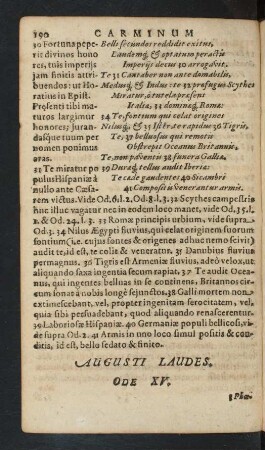 190 CARMINUM
30 Fortuna pepe-
rit divinos hono
res, tuis imperijs
jam finitis attri-
buendos: ut Ho-
ratius in Epist.
Præsenti tibi ma-
turos largimur
honores; juran-
dasque tuum per
nomen ponimus
aras.
32 Te miratur po
pulus Hispaniæ à
nullo ante Cæsa-
Belli secundos reddidit exitus,
Laudemq́; & optatum peractis
Imperijs decus 30 arrogavit.
Te 31 Cantaber non ante domabilis,
Medusq́; & Indus: te 32 profugus Scythes
Miratur, ô tutela præsens
Italiæ, 33 dominæq́; Romæ:
34 Te fontium qui celat origines
Nilusq́; & 35 Ister: te rapidus 36 Tigris,
Te, 37 belluosus qui remotis
Obstrepit Oceanus Britannis,
Te, non paventis 38 funera Galliæ,
39 Duræq́; tellus audit Iberiæ:
Te cæde gaudentes 40 Sicambri
41 Compositis venerantur armis.
rem victus. Vide Od. 6. l. 2. Od 8. l. 3. 32 Scythes campestris
huc illuc vagatur nec in eodem loco manet, vide Od. 35. l.
1. & Od. 24. l. 3. 33 Romæ principis urbium, vide supra
Od. 3. 34 Nilus Ægypti fluvius, qui celat originem suorum
fontium (i.e. cujus fontes & origines adhuc nemo scivit)
audit te, id est, te colit & veneratur. 35 Danubius fluvius
permagnus. 36 Tigris est Armeniæ fluvius, adeò velox, ut
aliquando saxa ingentia secum rapiat. 37 Te audit Ocea-
nus, qui ingentes belluas in se continens, Britannos cir-
cuit longè sejunctos. 38 Galli mortem non
extimescebant, vel, propter ingenitam ferocitatem, vel,
quia sibi persuadebant, quod aliquando renascerentur.
39 Laboriosæ Hispaniæ. 40 Germaniæ populi bellicosi, vi-
de supra Od. 2. 41 Armis in uno loco simul positis & con-
ditis, id est, bello sedato & finito.
AUGUSTI LAUDES.
ODE XV.
1 Phœ-